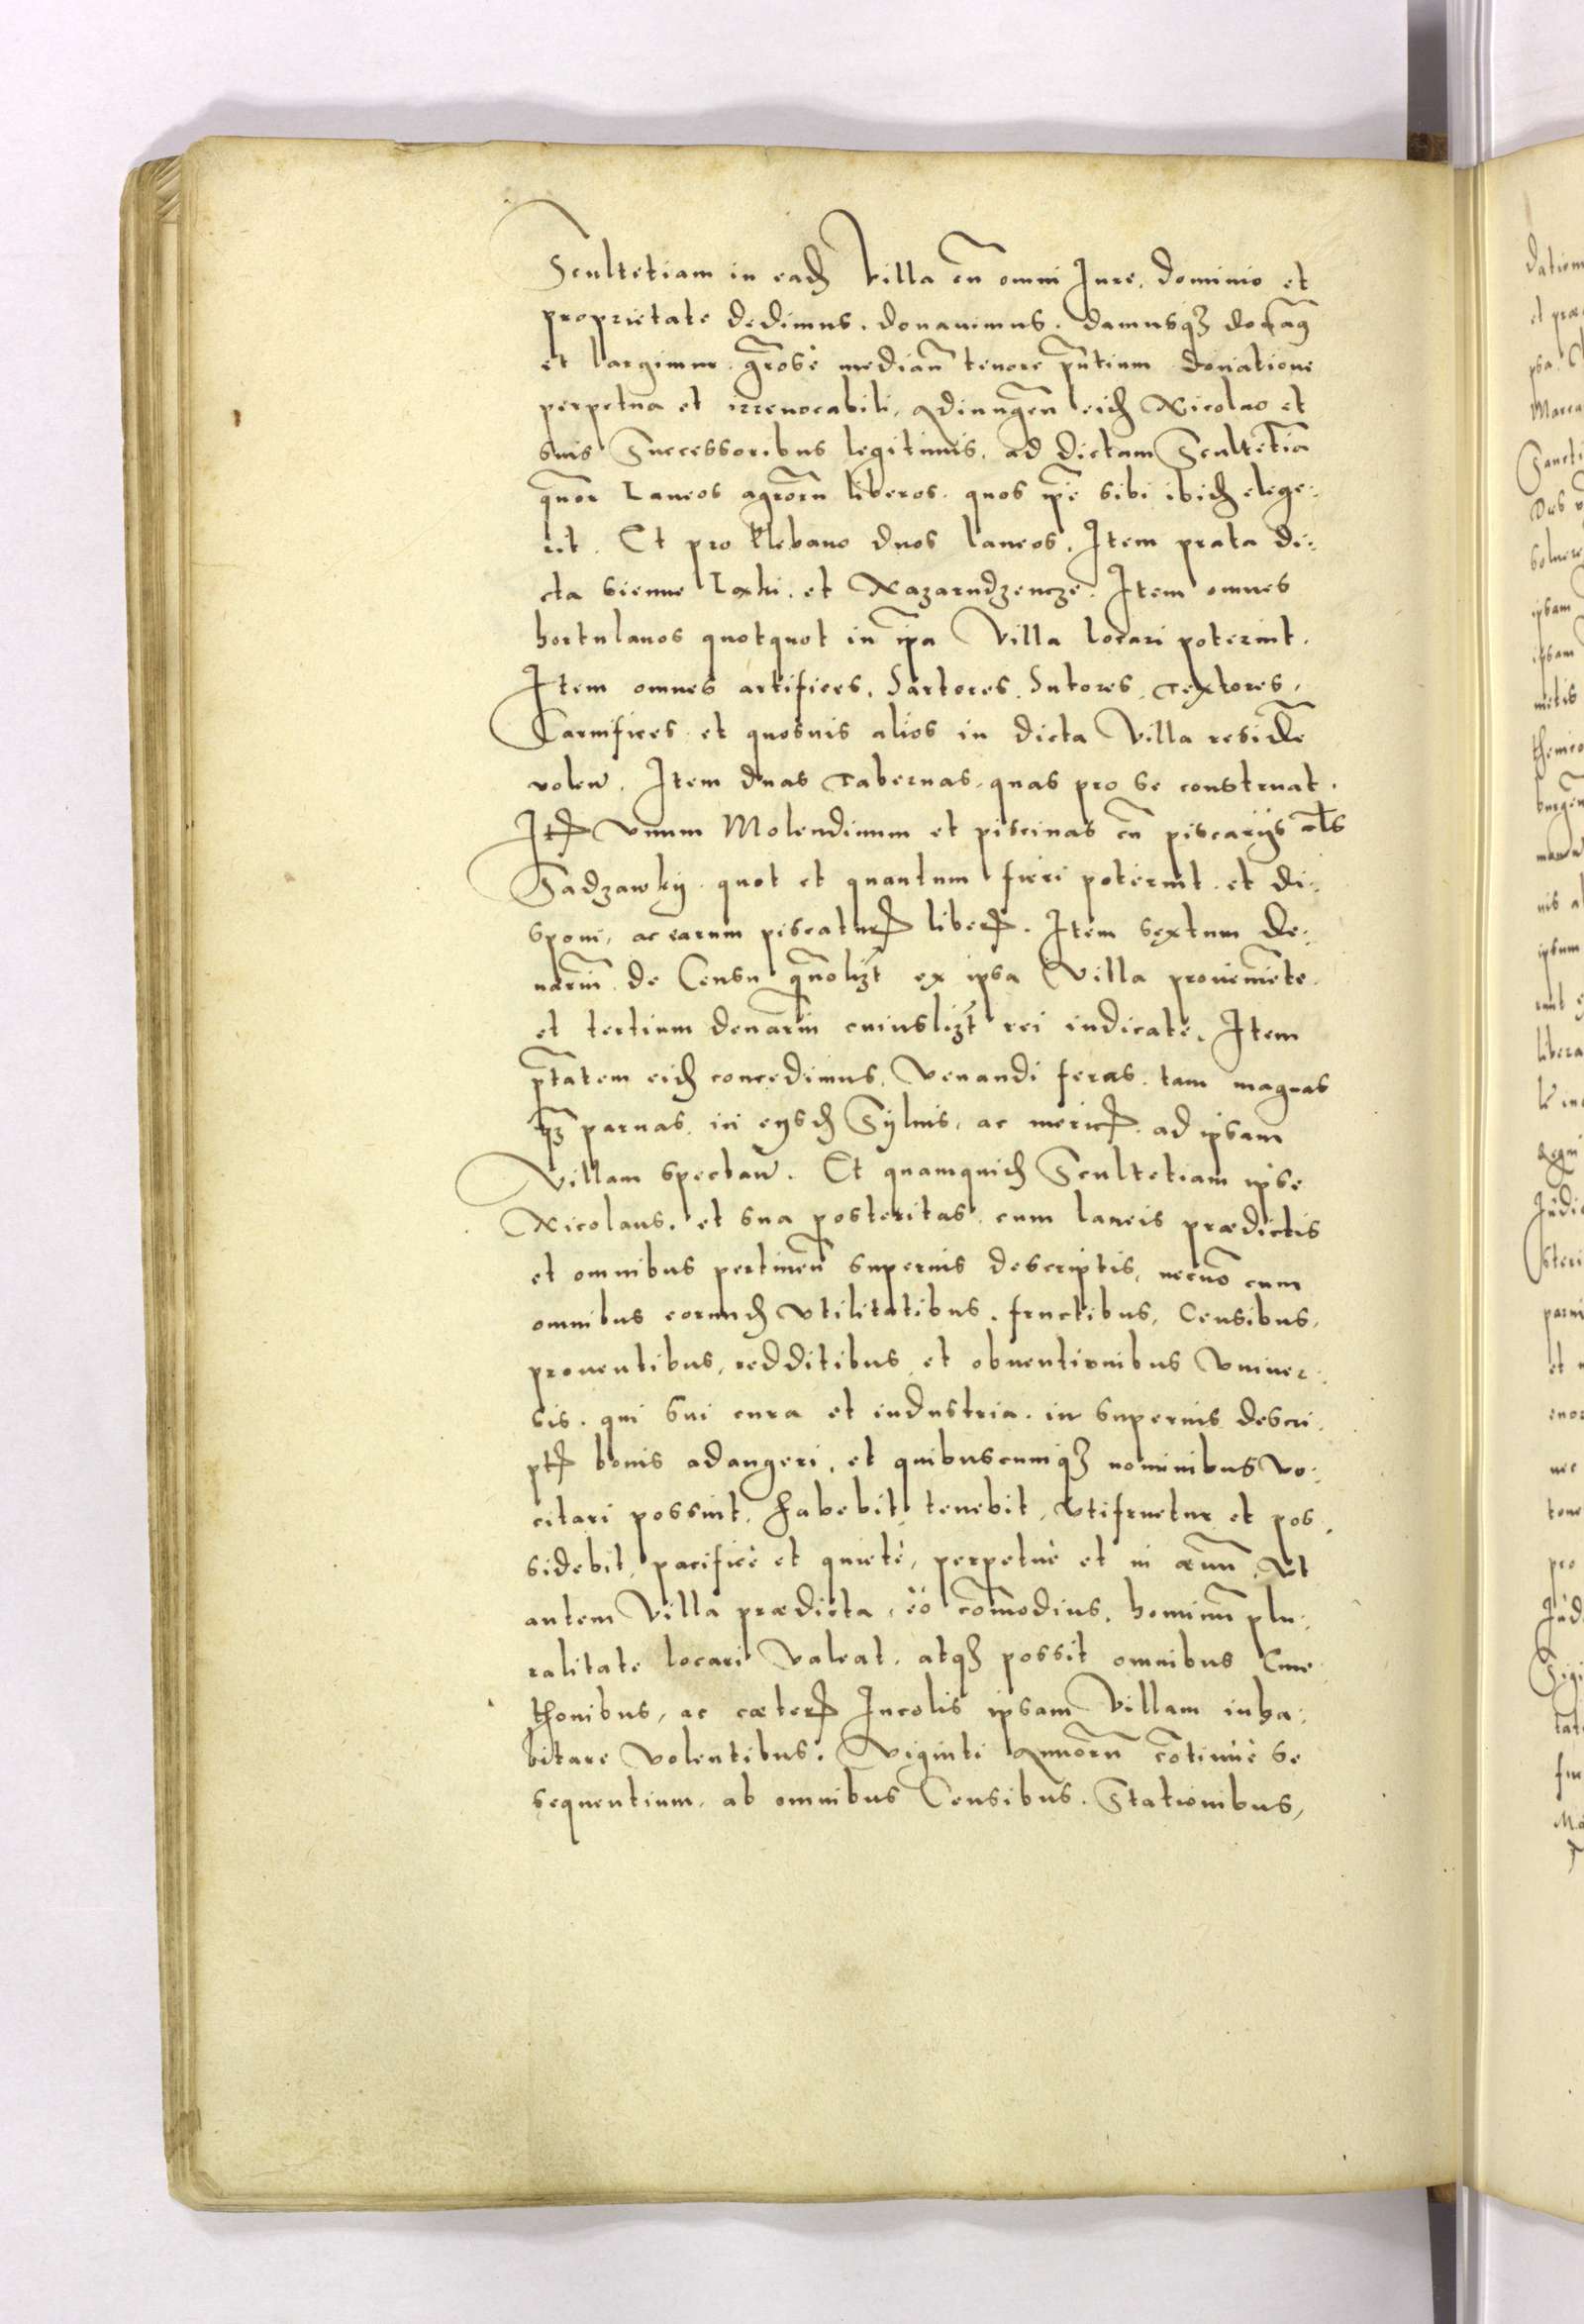 Scultetiam in eadē Villa cū omni Jure, dominio et
proprietate dedimus, donauimus, damusq3
et largimur grosè mediañ tenore pñtium donatione
perpetua et irreuocabili, Adiungeñ eidē Nicolao et
suis Successoribus legitimis, ad dictam Scultetiā
qtuor Laneos agrorū liberos, quos ip̄e sibi ibidē elege:
rit. Et pro Plebano duos laneos, Item prata di:
cta sienne Laxki, et Nazarndzencze. Item omnes
hortulanos quotquot in ip̄a Villa locari poterint.
Item omnes artifices, Sartores, Sutores, Textores,
Carnifices et quosuis alios in dicta Villa residē
voleñ. Item duas Tabernas, quas pro se construat.
Itē Vnum Molendinum et piscinas cū piscarijs al̄s
Sadzawkij. quot et quantum fieri poterint. et di:
sponi, ac earum piscaturē liberē. Item sextum de:
nariū de Censu qūolizt ex ipsa Villa prouenieñte.
et tertium denariū cuiuslizt rei iudicate. Item
ptātem eidē concedimus, Venandi feras, tam magnas
q̄3 paruas, in eijsdē Syluis, ac mericē ad ipsam
Villam spectañ. Et quamquidē Scultetiam ipse
Nicolaus, et sua posteritas, cum laneis prædictis
et omnibus pertineñ superius descriptis, necnō cum
omnibus eorundē Vtilitatibus, fructibus, Censibus,
prouentibus, redditibus et obuentionibus Vniuer:
sis. qui sui cura et industria, in superius descri:
ptē bonis adaugeri, et quibuscumq3 nominibus Vo:
citari possint, habebit, tenebit, Vtifruetur et pos:
sidebit, pacificè et quietè, perpetuè et in æuū. Vt
autem Villa prædicta, eò cōmodius, hominū plu:
ralitate locari Valeat, atq3 possit omnibus Cme:
thonibus, ac cæterē Incolis ipsam Villam inha:
bitare Volentibus. Viginti Annorū cōtinuè se
sequentium, ab omnibus Censibus, Stationibus,